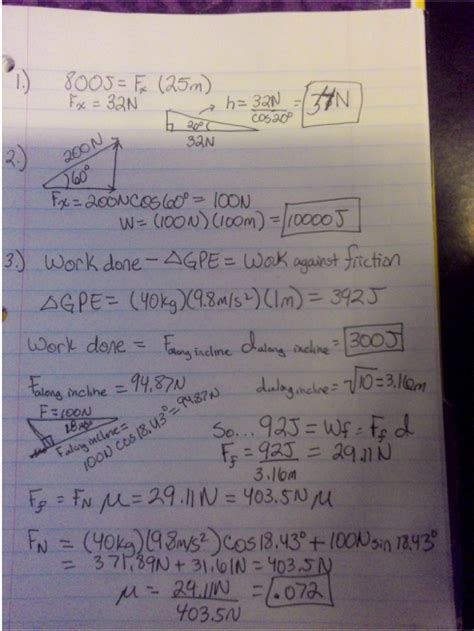 1.) 800J = Fx (25m)
Fx = 32N
h = 32N/cos20° = N
20°
32N
2.) 200N
60°
Fx = 200Ncos60° = 100N
W = (100N)(100m) = 10000J
3.) Work done - ΔGPE = Work against friction
ΔGPE = (40kg)(9.8m/s²)(1m) = 392J
Work done = Falong incline dalong incline = 300J
Falong incline = 94.87N
dalong incline = √10 = 3.16m
F=100N
18.43°
Falong incline =
100N cos18.43° = 94.87N
So... 92J = Wf = Ff d
Ff = 92J/3.16m = 29.11N
Ff = FN μ = 29.11N = 403.5N μ
FN = (40kg)(9.8m/s²)cos18.43° + 100N sin 18.43°
= 371.89N + 31.61N = 403.5N
μ = 29.11N/403.5N = .072